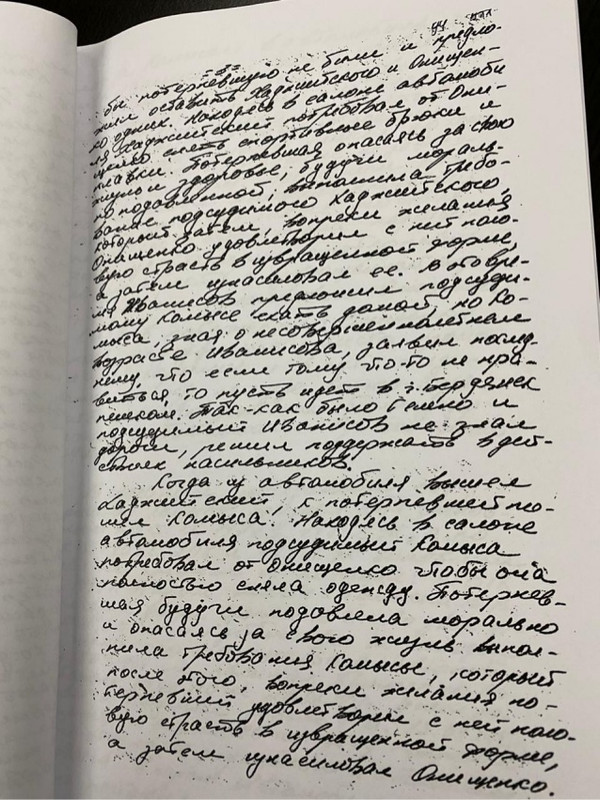 - 3 -
бы потерпевшую не били и предло-
жил оставить Хаджийского и Онищен-
ко одних. Находясь в салоне автомоби
ля Хаджийский потребовал от Они-
щенко снять спортивные брюки и
плавки. Потерпевшая опасаясь за свою
жизнь и здоровье, будучи мораль-
но подавленной, выполнила требо-
вание подсудимого Хаджийского,
который затем, вопреки желания
Онищенко удовлетворил с ней поло-
вую страсть в извращенной форме,
а затем изнасиловал ее. В это вре-
мя Иванисов предложил подсуди-
мому Камысе ехать домой, но Ка-
мыса, зная о несовершеннолетнем
возрасте Иванисова, заявил послед-
нему, что если тому что-то не нра-
виться, то пусть идет в г. Бердянск
пешком. Так-как было темно и
подсудимый Иванисов не знал
дороги, решил поддержать в дей-
ствиях насильников.
Когда из автомобиля вышел
Хаджийский, к потерпевшей по-
шел Камыса. Находясь в салоне
автомобиля подсудимый Камыса
потребовал от Онищенко чтобы она
полностью сняла одежду. Потерпев-
шая будучи подавлена морально
и опасаясь за свою жизнь выпол-
нила требования Камысы, который
после этого, вопреки желания по-
терпевшей удовлетворил с ней поло-
вую страсть в извращенной форме,
а затем изнасиловал Онищенко.